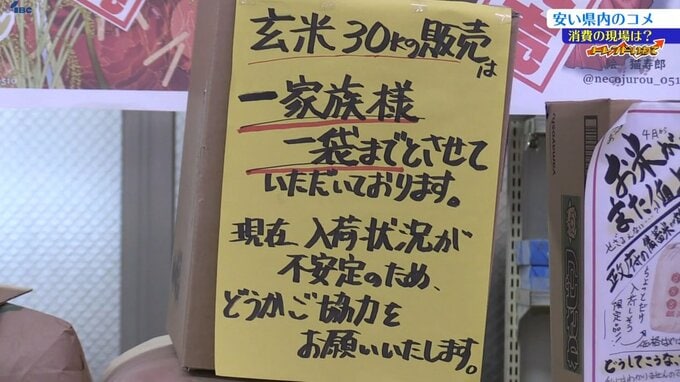 IBC
安い県内のコメ
消費の現場は？
絵 猫寿郎
@necojurou_051
玄米30kgの販売は
一家族様
一袋までとさせて
いただいております。
現在 入荷状況が
不安定のため、
どうかご協力を
お願いいたします。
4月から
お米が
また値上
政府の備蓄米
ちょっとだけ
入荷しそう
どうしてこうな